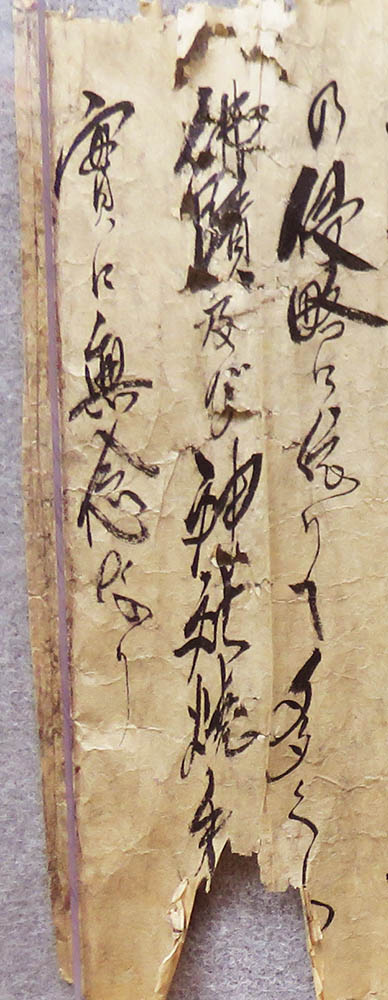 の侵略に依りて多くの
佛蹟及び神社焼失
實に無念なり